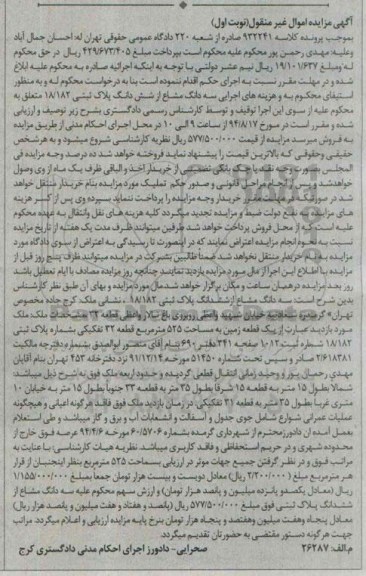 آگهی مزایده اموال غیر منقول(نوبت اول)
بموجب پرونده کلاسه ۹۳۲۲۴۱ صادره از شعبه ۲۲۰ دادگاه عمومی حقوقی تهران له: احسان جمال آباد
وعلیه: مهدی رحمن پور محکوم علیه محکوم است بپرداخت مبلغ ۴۲۹/۶۷۳/۴۰۵ ریال در حق محکوم
له ومبلغ ۱۹/۱۰۱/۶۳۷ ریال نیم عشر دولتی با توجه به اینکه اجرائیه صادره به محکوم علیه ابلاغ
شده و در مهلت مقرر نسبت به اجرای حکم اقدام ننموده است بنا به درخواست محکوم له و به منظور
استیفای محکوم به و هزینه های اجرایی سه دانگ مشاع از شش دانگ پلاک ثبتی ۱۸/۱۸۲ متعلق به
محکوم علیه از سوی این اجرا توقیف و توسط کارشناس رسمی دادگستری بشرح زیر توصیف و ارزیابی
شده و مقرر است در مورخ ۹۴/۸/۱۷ از ساعت ۹ الی ۱۰ در محل اجرای احکام مدنی از طریق مزایده
به فروش میرسد مزایده از قیمت ۵۷۷/۵۰۰/۰۰۰ ریال نظریه کارشناسی شروع میشود و به هر شخص
حقیقی وحقوقی که بالاترین قیمت را پیشنهاد نماید فروخته خواهد شد ده درصد وجه مزایده فی
المجلس بصورت وجه نقد یا چک بانکی تضمینی از خریدار اخذ و الباقی ظرف یک ماه از وی وصول
خواهد شد و پس از طی مراحل قانونی و صدور حکم تملیک مورد مزایده بنام خریدار منتقل خواهد
شد در صورتیکه در مهلت مقرر خریدار وجه مزایده را پرداخت ننماید سپرده وی پس از کسر هزینه
های مزایده به نفع دولت ضبط و مزایده تجدید میگردد کلیه هزینه های نقل وانتقال به عهده محکوم
علیه است که از محل فروش پرداخت خواهد شد طرفین میتوانند ظرف مدت یک هفته از تاریخ مزایده
نسبت به نحوه انجام مزایده اعتراض نمایند که در اینصورت تا رسیدگی به اعتراض از سوی دادگاه مورد
مزایده به نام خریدار منتقل نخواهد شد ضمنا طالبین بشرکت در مزایده میتوانند ظرف پنج روز قبل از
مزایده با اطلاع این اجرا از مال مورد مزایده بازدید نمایند چنانچه روز مزایده مصادف با ایام تعطیل باشد
روز بعد مزایده در همان ساعت و مکان برگزار خواهد شد مال مورد مزایده و بهای آن طبق نظر کارشناس
بدین شرح است: سه دانگ مشاع از ششدانگ پلاک ثبتی ۱۸/۱۸۲ ، نشانی ملک: کرج جاده مخصوص
تهران کرج
مورد بازدید عبارت از یک قطعه زمین به مساحت ۵۲۵ مترمربع قطعه ۳۲ تفکیکی بشماره پلاک ثبتی
۱۸/۱۸۲ شماره ثبت ۱۰۱۲ صفحه ۳۴۱ دفتر ۶۹۰ بنام آقای منصور ابوالعبدق
۲/۶۱۸۳۸۱ صادر و سپس تحت شماره ۵۱۴۵۰ مورخه ۹۱/۱۲/۱۴ نزد دفترخانه ۴۵۳ تهران بنام آقایان
مهدی رحمان پور و وحید زمانی انتقال قطعی گردیده و حدود اربعه ملک فوق به شرح ذیل میباشد:
شمالا بطول ۱۵ متر به قطعه ۱۵ شرقا بطول ۳۵ متر به قطعه ۳۳ جنوبا بطول ۱۵ متر به خیابان ۱۰
متری غربا بطول ۳۵ متر به قطعه ۳۱ تفکیکی. در زمان بازدید ملک فوق فاقد هرگونه اعیانی و هیچگونه
عملیات عمرانی شوارع شامل جوی جدول و آسفالت و انشعابات آب و برق و گاز میباشد و طی استعلام
بعمل آمده آن دادورزمحترم از شهرداری گرمدره بشماره ۶۰/۵۷۰۶ مورخه ۹۴/۴/۶ عرصه فوق خارج از
محدوده شهری و در حریم استحفاظی و فاقد کاربری میباشد. نظریه هیات کارشناسی با عنایت به
مراتب فوق و در نظر گرفتن جمیع جهات موثر در ارزیابی بمساحت ۵۲۵ مترمربع بنظر اینجانبان از قرار
هر مترمربع مبلغ ( ۲/۲۰۰/۰۰۰ ریال) معادل دویست و بیست هزار تومان جمعا بمبلغ ۱/۱۵۵/۰۰۰/۰۰۰
ریال (معادل یکصدو پانزده میلیون و پانصد هزار تومان) و ارزش سهم محکوم علیه سه دانگ مشاع از
ششدانگ پلاک ثبتی فوق مبلغ ۵۷۷/۵۰۰/۰۰۰ ریال (پانصد و هفتاد و هفت میلیون و پانصد هزار ریال)
معادل پنجاه وهفت میلیون وهفتصد و پنجاه هزار تومان بنرخ پایه مزایده ارزیابی و اعلام میگردد. مراتب
جهت هر گونه دستور مقتضی به حضورتان تقدیم میگردد.
م.الف: ۲۶۲۸۷ صحرایی- دادورز اجرای احکام مدنی دادگستری کرج